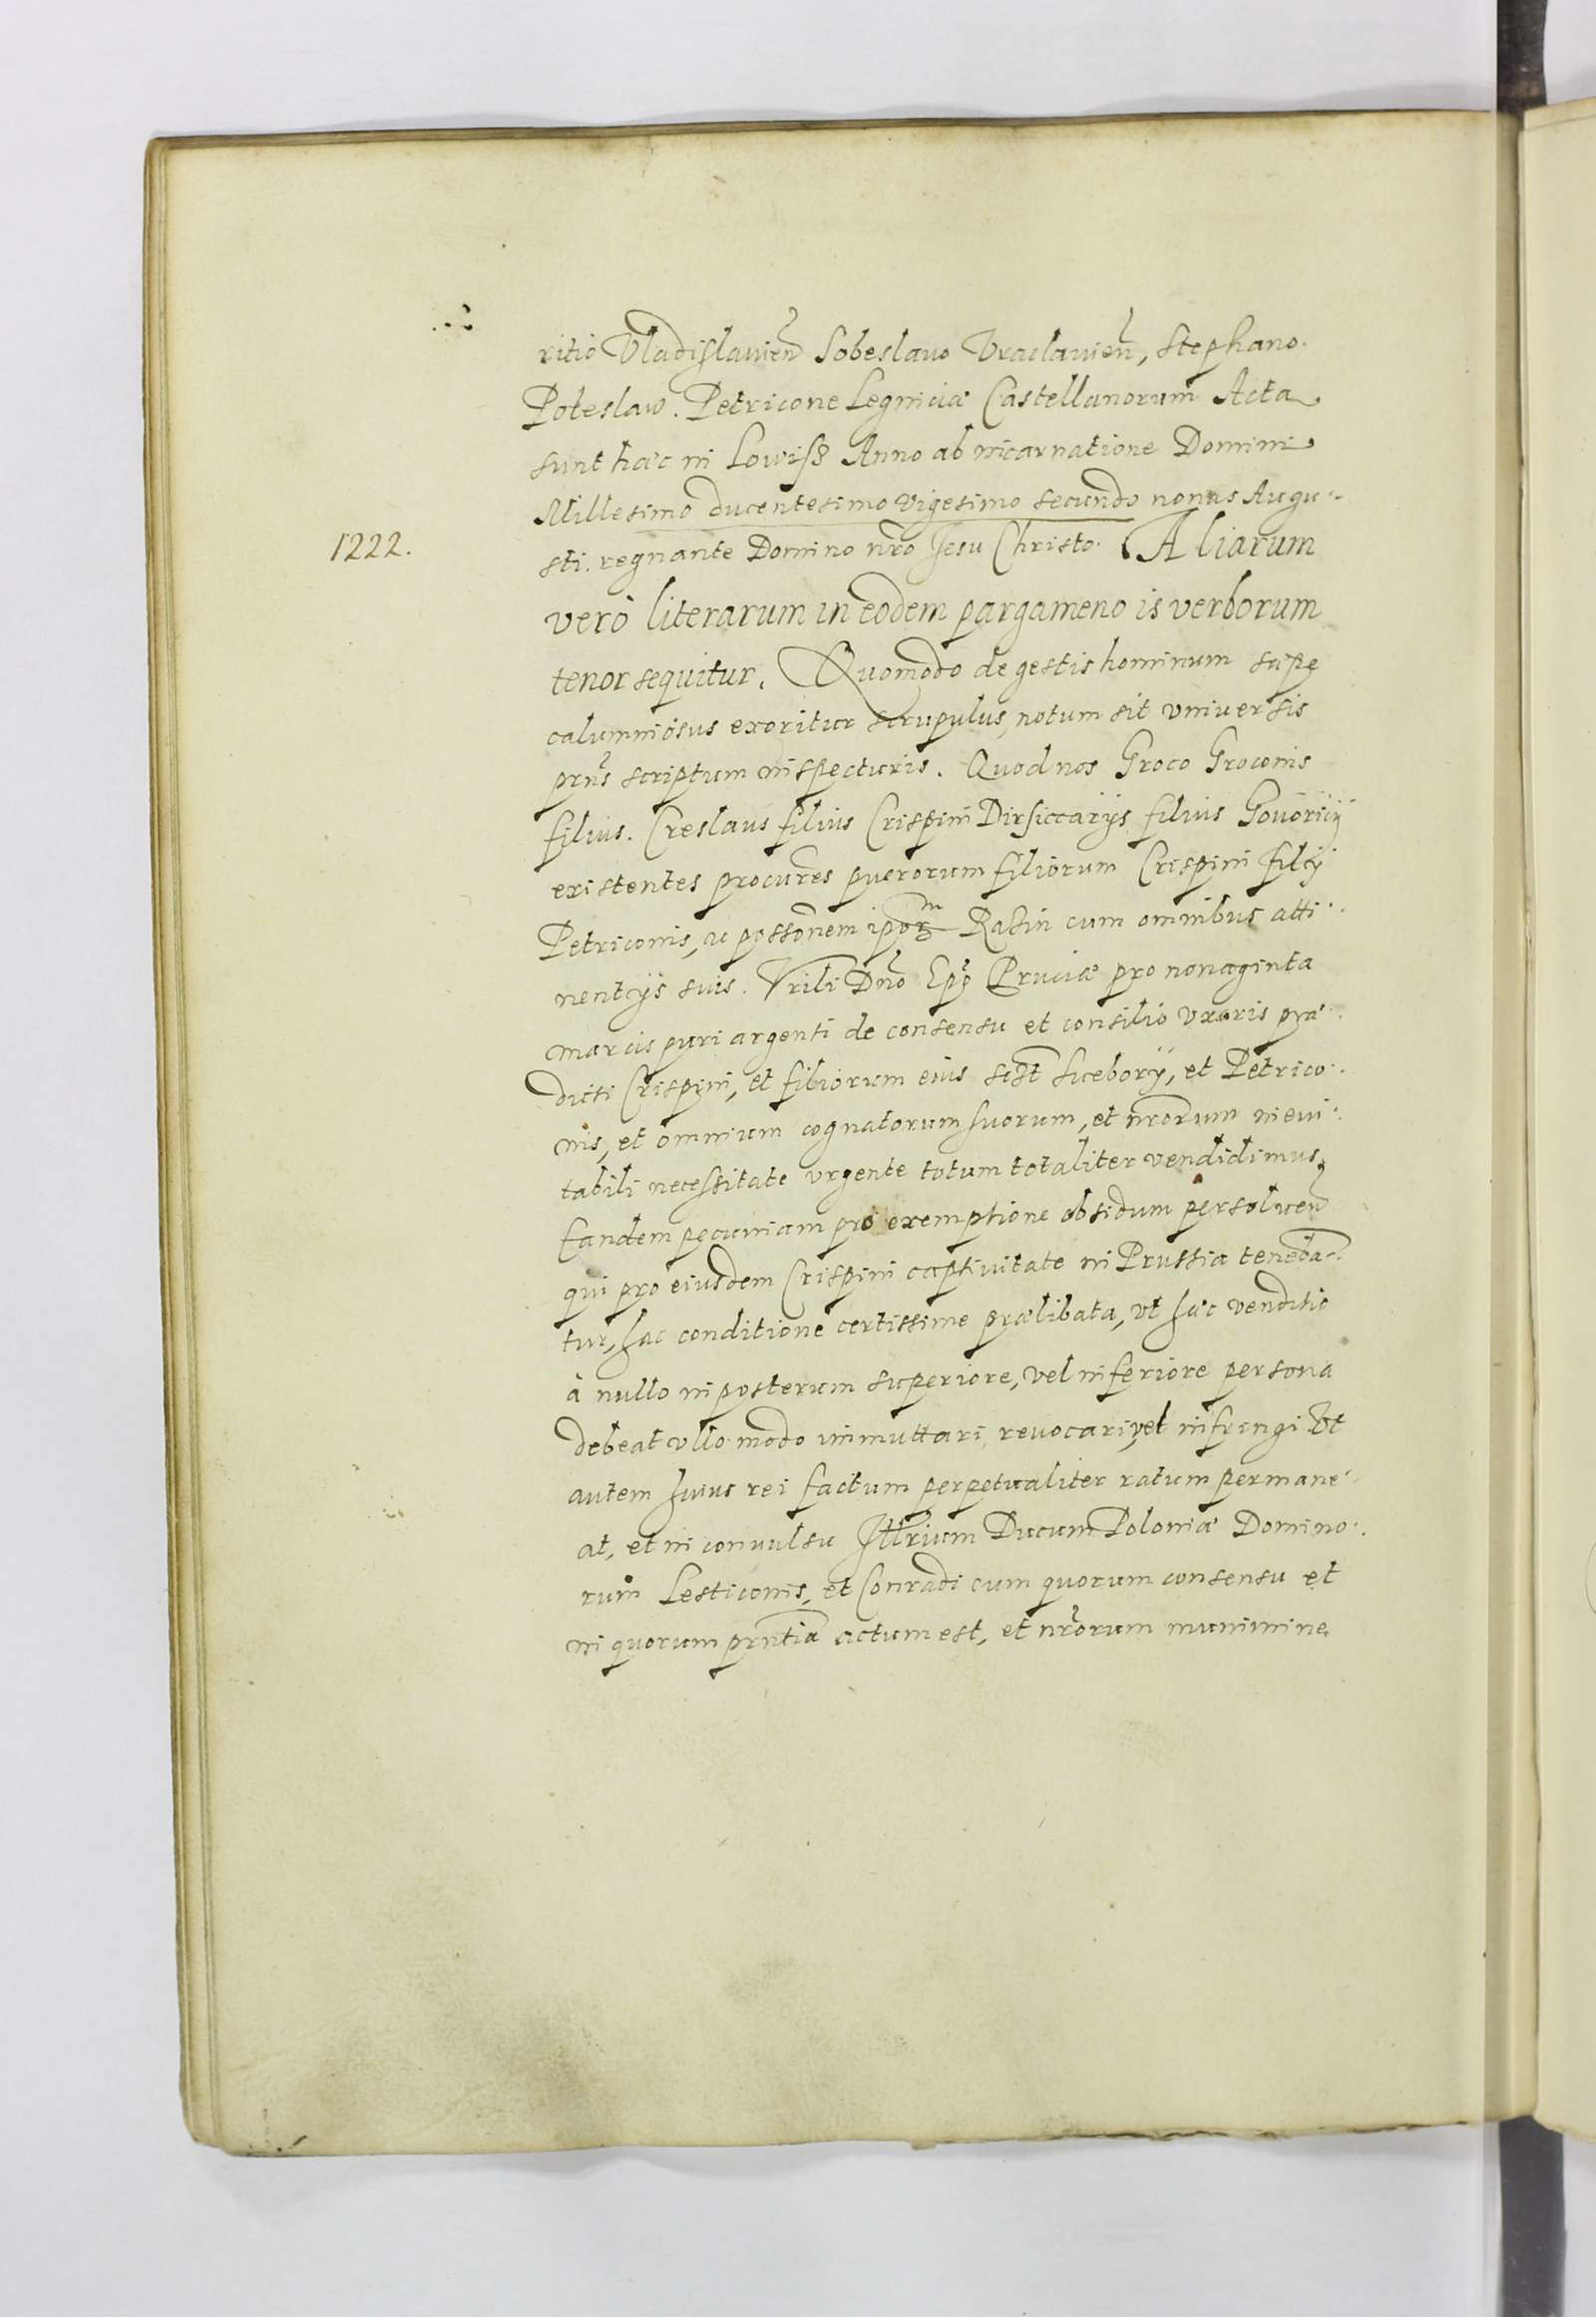 ritio Vladislauien Sobeslauo Vraclauien, Stephano.
Boleslaw. Petricone Legniciæ Castellanorum Acta
sunt hæc in Lowiss Anno ab incarnatione Domini
Millesimo ducentesimo vigesimo secundo nonas Augu-
1222.
sti. regnante Domino nro Jesu Christo. Aliarum
verò literarum in eodem pargameno is verborum
tenor sequitur. Quomodo de gestis hominum sæpe
calumniosus exoritur scrupulus, notum sit vniuersis
prns scriptum inspecturis. Quod nos Groco Groconis
filius. Creslaus filius Crispini Dirsiccarijs filius Gouoricij
existentes procures puerorum filiorum Crispini filij
Petriconis, ac possonem ipor Rasin cum omnibus atti-
nentijs suis. Vrili Dno Epo Pruciæ pro nonaginta
marcis puri argenti de consensu et consilio vxoris præ-
dicti Crispini, et filiorum eius silt Sicebory, et Petrico-
nis, et omnium cognatorum suorum, et nrorum ineui-
tabili necessitate vrgente totum totaliter vendidimus,
Eandem pecuniam pro exemptione obsidum persoluen
qui pro eiusdem Crispini captiuitate in Prussia teneba-
tur, hac conditione certissime prælibata, vt hæc venditio
à nullo in posterum superiore, vel inferiore persona
debeat vllo modo immuttari, reuocari, vel infringi Vt
autem huius rei factum perpetualiter ratum permane-
at, et in conuulsu Jttrium Ducum Poloniæ Domino-
rum Lesticonis, et Conradi cum quorum consensu et
in quorum prntia actum est, et nrorum munimine